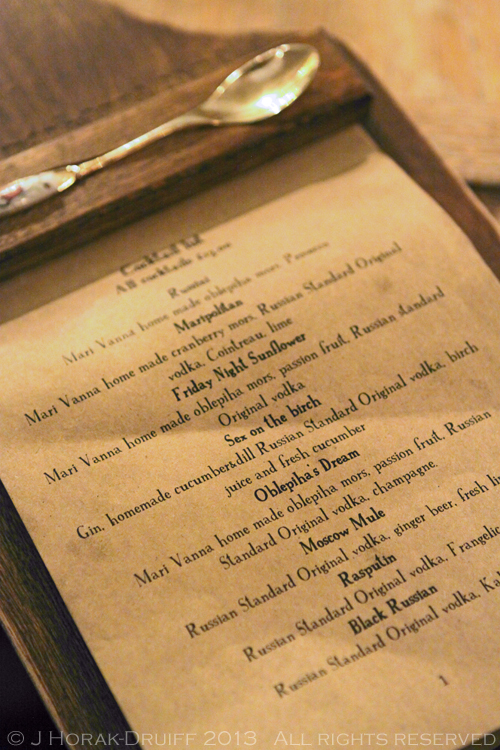 Cocktail list
All cocktails £13.00
Russini
Mari Vanna home made oblepiha mors, Prosecco
Maripolitan
Mari Vanna home made cranberry mors, Russian Standard Original
vodka, Cointreau, lime
Friday Night Sunflower
Mari Vanna home made oblepiha mors, passion fruit, Russian standard
Original vodka
Sex on the birch
Gin, homemade cucumber&dill Russian Standard Original vodka, birch
juice and fresh cucumber
Oblepiha's Dream
Mari Vanna home made oblepiha mors, passion fruit, Russian
Standard Original vodka, champagne,
Moscow Mule
Russian Standard Original vodka, ginger beer, fresh
Rasputin
Russian Standard Original vodka, Frangelic
Black Russian
Russian Standard Original vodka, Ka
1
© J Horak-Druiff 2013 All rights reserved